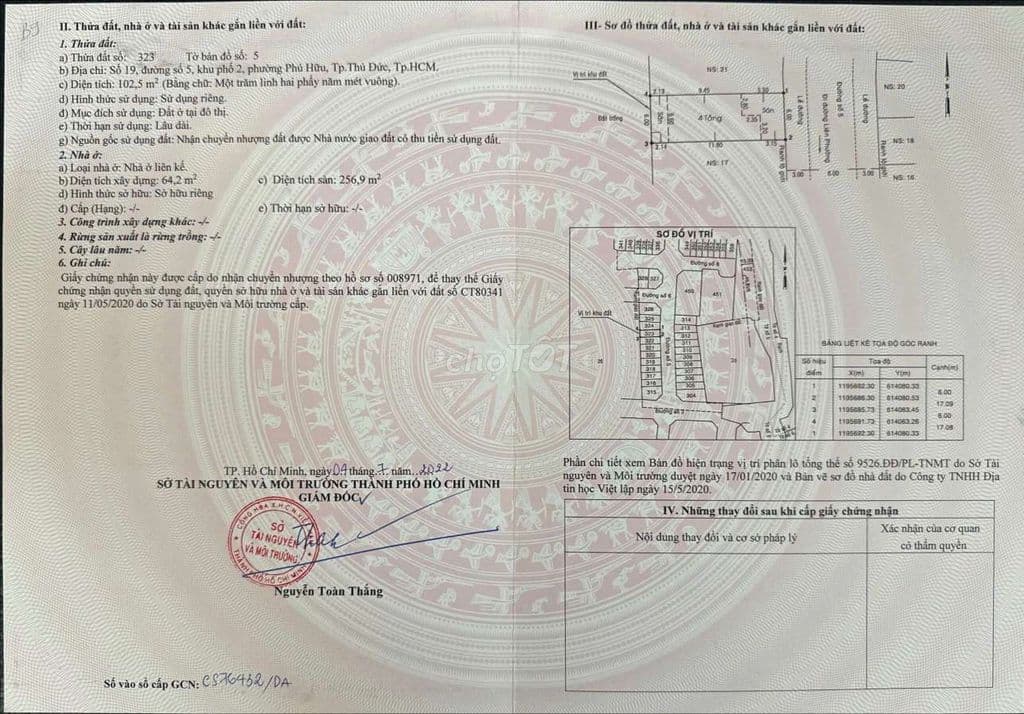 II. Thửa đất, nhà ở và tài sản khác gắn liền với đất:
1. Thửa đất:
a) Thửa đất số: 323 Tờ bản đồ số: 5
b) Địa chỉ: Số 19, đường số 5, khu phố 2, phường Phú Hữu, Tp.Thủ Đức, Tp.HCM.
c) Diện tích: 102,5 m² (Bằng chữ: Một trăm linh hai phẩy năm mét vuông).
d) Hình thức sử dụng: Sử dụng riêng.
đ) Mục đích sử dụng: Đất ở tại đô thị.
e) Thời hạn sử dụng: Lâu dài.
g) Nguồn gốc sử dụng đất: Nhận chuyển nhượng đất được Nhà nước giao đất có thu tiền sử dụng đất.
2. Nhà ở:
a) Loại nhà ở: Nhà ở liên kế.
b) Diện tích xây dựng: 64,2 m² c) Diện tích sàn: 256,9 m²
d) Hình thức sở hữu: Sở hữu riêng
đ) Cấp (Hạng): -/- e) Thời hạn sở hữu: -/-
3. Công trình xây dựng khác: -/-
4. Rừng sản xuất là rừng trồng: -/-
5. Cây lâu năm: -/-
6. Ghi chú:
Giấy chứng nhận này được cấp do nhận chuyển nhượng theo hồ sơ số 008971, để thay thế Giấy
chứng nhận quyền sử dụng đất, quyền sở hữu nhà ở và tài sản khác gắn liền với đất số CT80341
ngày 11/05/2020 do Sở Tài nguyên và Môi trường cấp.
TP. Hồ Chí Minh, ngày 04 tháng 7 năm 2022
SỞ TÀI NGUYÊN VÀ MÔI TRƯỜNG THÀNH PHỐ HỒ CHÍ MINH
GIÁM ĐỐC
SỞ
TÀI NGUYÊN
VÀ MÔI TRƯỜNG
THÀNH PHỐ HỒ CHÍ MINH
Nguyễn Toàn Thắng
Số vào sổ cấp GCN: CS76452/DA
chợTỐT
III- Sơ đồ thửa đất, nhà ở và tài sản khác gắn liền với đất:
NS: 21
NS: 20
Vị trí khu đất
Đất trống
4 tầng
Sân
Lề đường
Đường số 5
Lề đường
NS: 18
NS: 17
NS: 16
3.00 6.00 3.00
SƠ ĐỒ VỊ TRÍ
Đường số 8
Đường số 6
Vị trí khu đất
Đường số 5
450
451
BẢNG LIỆT KÊ TỌA ĐỘ GÓC RANH
Số hiệu điểm Tọa độ Cạnh(m)
X(m) Y(m)
1 1195692.30 614080.33
6.00
2 1195686.30 614080.53
17.09
3 1195685.73 614063.45
6.00
4 1195691.73 614063.26
17.08
1 1195692.30 614080.33
Phần chi tiết xem Bản đồ hiện trạng vị trí phân lô tổng thể số 9526.ĐĐ/PL-TNMT do Sở Tài
nguyên và Môi trường duyệt ngày 17/01/2020 và Bản vẽ sơ đồ nhà đất do Công ty TNHH Địa
tin học Việt lập ngày 15/5/2020.
IV. Những thay đổi sau khi cấp giấy chứng nhận
Nội dung thay đổi và cơ sở pháp lý
Xác nhận của cơ quan
có thẩm quyền